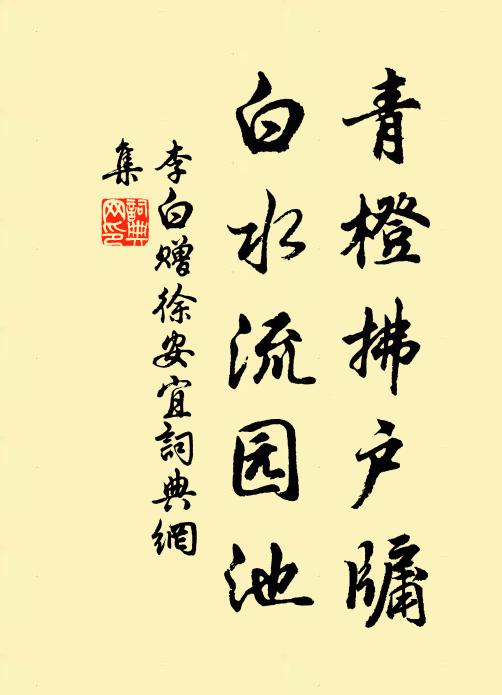 青橙拂户牖
白水流园池
李白赠徐安宜詞典網
集
詞典
网印